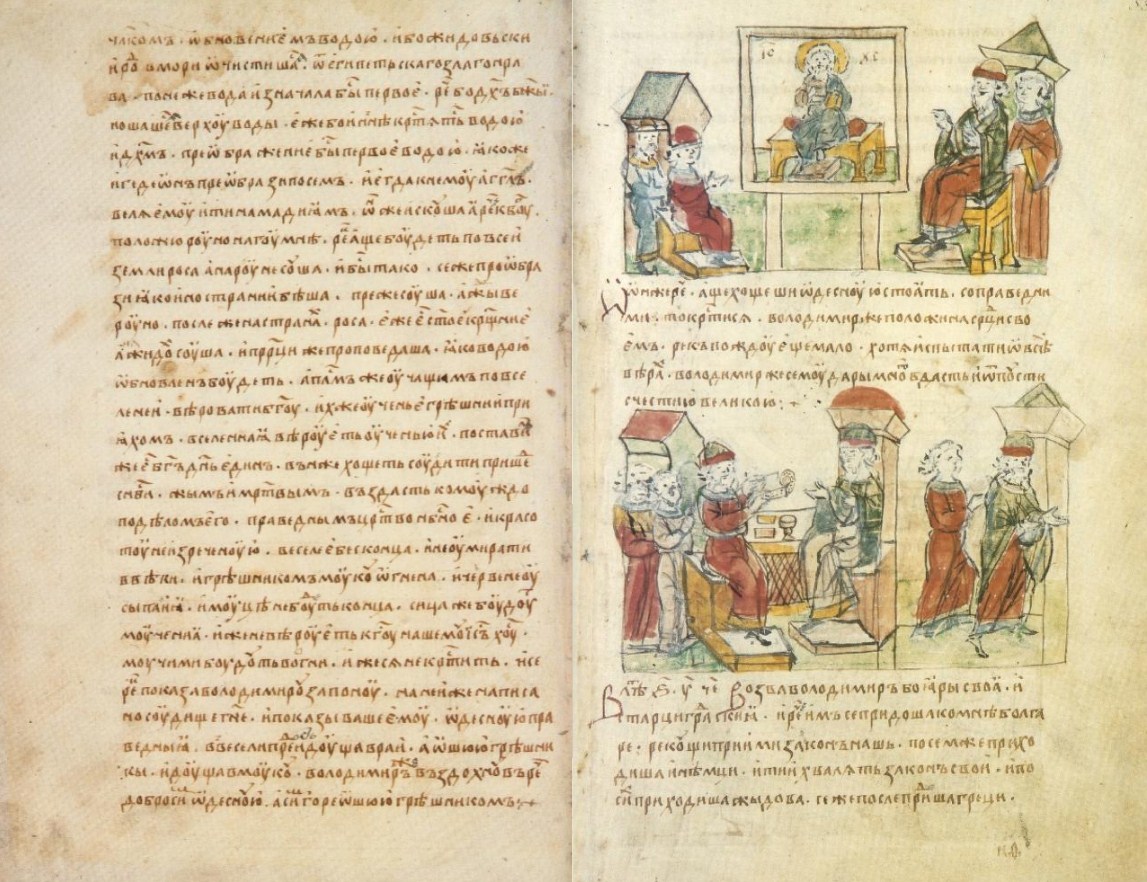 чл҃комъ · ѡбновение мъ водою · ибо жидовьски
и ро҆ в мори ѡчистиша с · ѿ египетьскаго злаго нра
ва · понеже вода изначала бы҆ первое · рє҆ бо дх҃ъ бж҃ьи
ношашесѧ верхоу воды · еже бо и нн҃ѣ кр҃тѧтьсѧ водою
и дх҃мъ · преѡбражение бы҆ первое водою · ꙗкоже
и гедеѡнъ преѡбрази по семъ · и егда к немоу агг҃лъ ·
велѧ емоу ити на мадиамъ · ѡн же искоуша ꙗ рє҆ к бг҃оу ·
положю роуно на гоумнѣ · рє҆ аще боудеть по всеи
земли роса а на роуне соуша · и бы҆ тако · се же преѡбра
зи ꙗко иностранни бѣша · преже соуша · а жы ве
роуно · послеже на страна҆ · роса · еже є҆ с҃тое кр҃щние
а жидо҆ соуша · и пррци же проповедаша · ꙗко водою
ѡбновленъ боудеть · ап҃лмъ же оучащимъ по все
ленеи · вѣровати бг҃оу · их же оученье грѣшнии при
ꙗхомъ · вселеннаꙗ вѣроуеть оученью и҆ · постави҆
же е҆ бг҃ъ дн҃ь единъ · въ нже хощеть соудити прише҆
с нб҃си · жывымъ и мр҃твымъ · въздасть комоуждо
по дѣломъ его · праведнымъ цр҃тво нбн҆о е҆ · и красо
тоу неизреченоую · веселе бес конца · и не оумирати
в вѣки · и грѣшникомъ моукоу ѡгнена · и червь не оу
сыпаꙗи · и моуцѣ не боу҆ть конца · сица же боудоу
моученьꙗ · иже не вѣроуеть к г҃оу нашемоу іс҃ъ хо҃у ·
моучими боудоуть в огни · иже сѧ не кр҃тить · и се
ре҆ показа володимироу запоноу · на неи же написа
но соудище гн҃е · и показываше емоу · ѡдесноую пра
ведныꙗ · в веселии преидоуща в раи · а ѡшюю грѣшни
кы · идоуща в моукоу · володимиръ же въздохноувъ рє҆
добро си҆ ѡдесною · а си҆ горе ѡшюю грѣшникомъ
ІС ХС
Ѡн же рє҆ · аще хощеши ѡдесноую стоꙗть · со праведни
ми · то кр҃тисѧ · володимиръ же положи на ср҃ци сво
емъ · рекъ пождоу еще мало · хотѧ испытати ѡ всѣ҆
вѣра҆ · володимир же семоу дары мно҆ вдасть и ѿпоусти
с честию великою :
В лѣт҆ ҂ѕ · у҃ · чє Возва володимиръ боꙗры своꙗ · и
старци гра҆скиꙗ · и рє҆ имъ се придоша ко мнѣ болга
ре : рекоущи приими законъ нашь · посем же прихо
диша и немци · и тии хвалѧть законъ свои · и по
си҆ приходиша жыдова · се же после приидоша греци ·